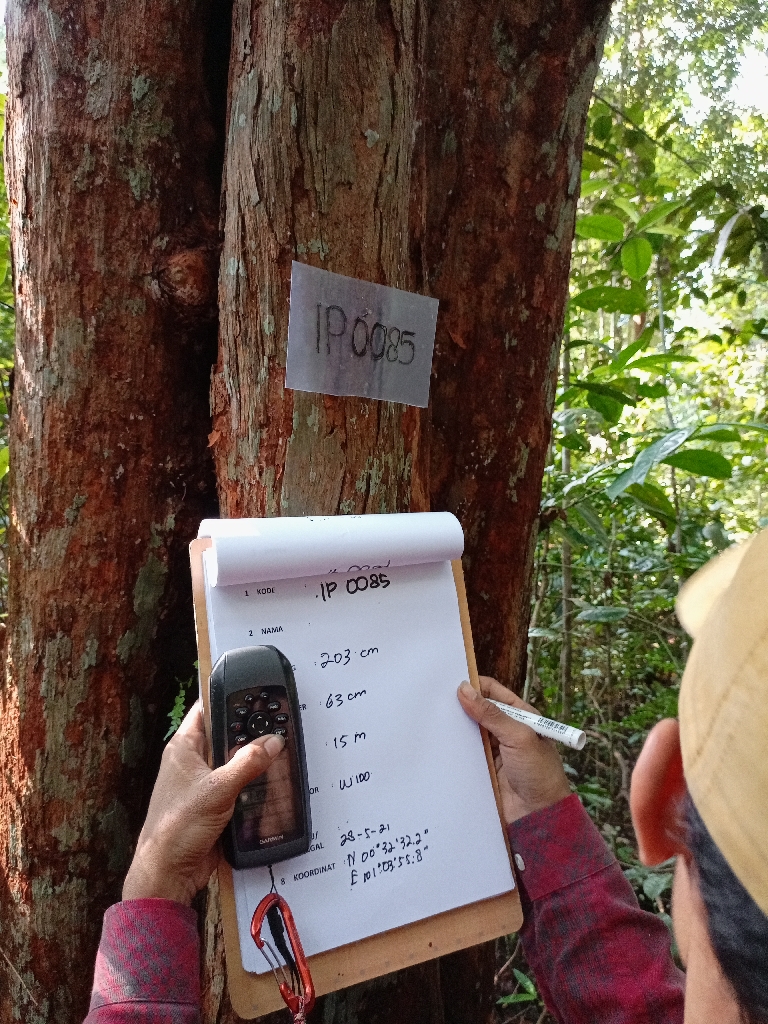 IP 0085
1 KODE : IP 0085
2 NAMA :
: 203 cm
ER : 63 cm
: 15 m
OR : WIDO
GAL 28-5-21
8 KOORDINAT : N 00°32'32.2"
E 101°03'55.8"
GARMIN